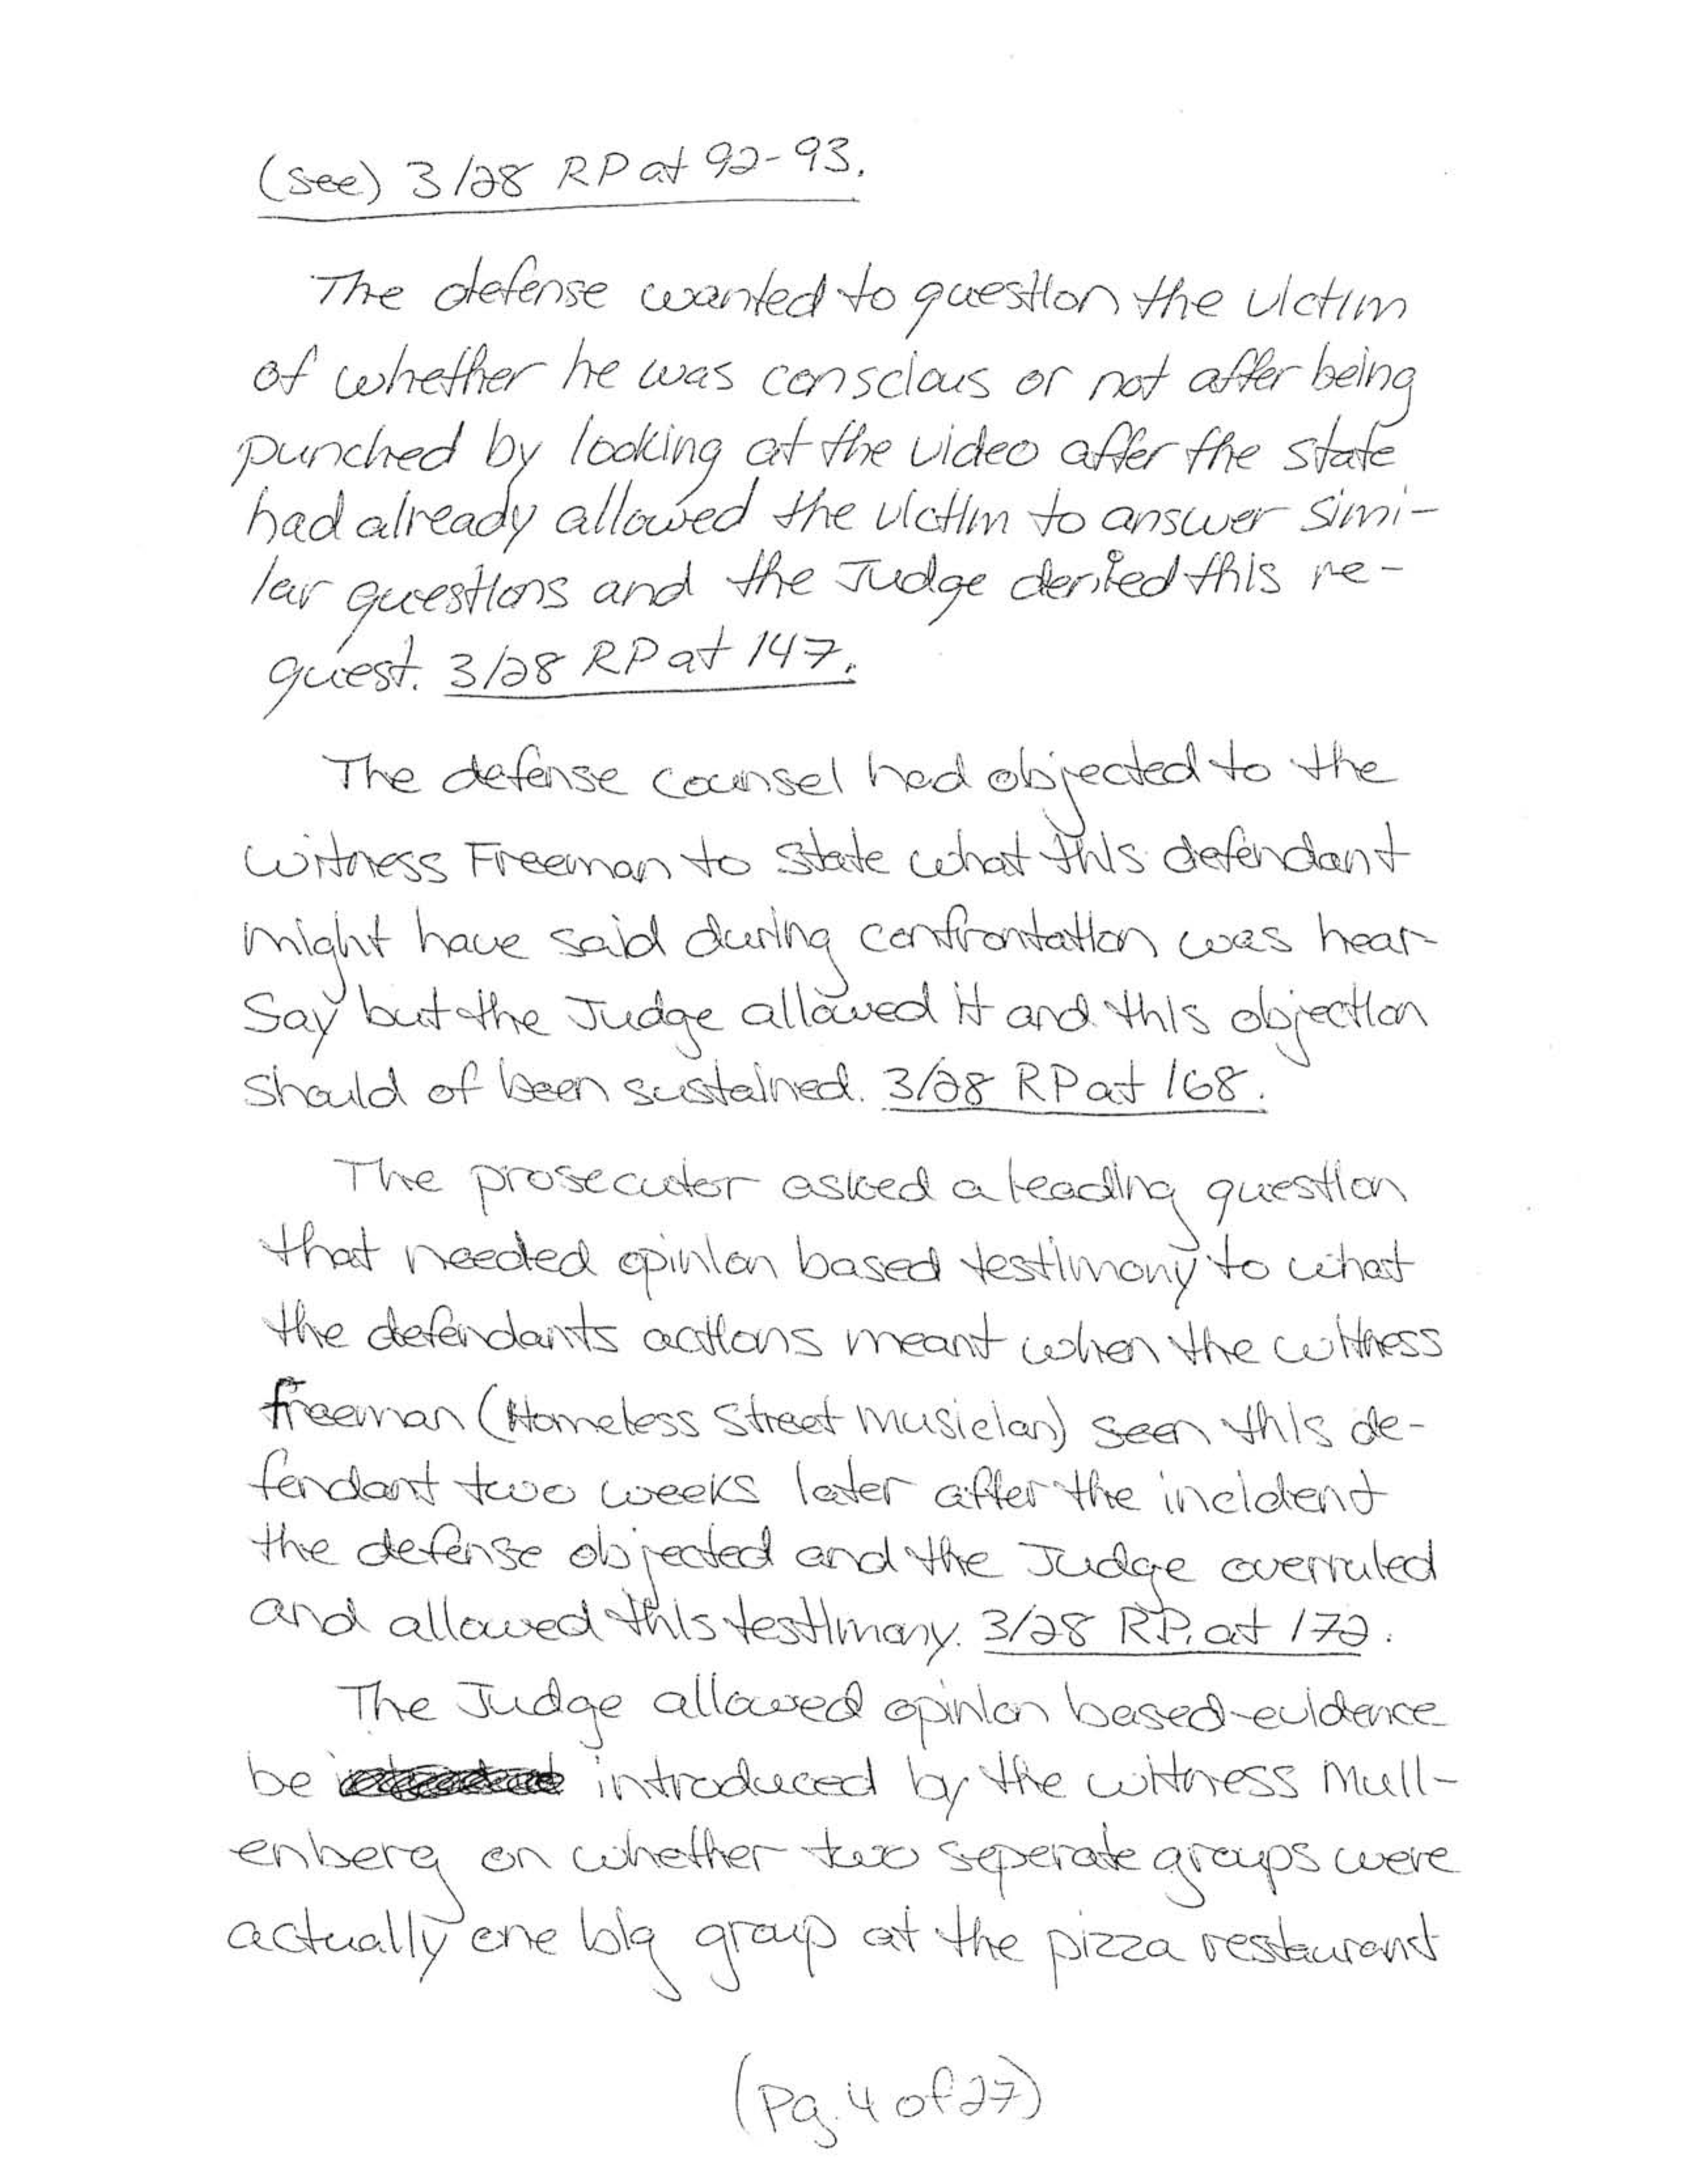 (see) 3/28 RP at 92-93.
The defense wanted to question the victim
of whether he was conscious or not after being
punched by looking at the video after the state
had already allowed the victim to answer simi-
lar questions and the Judge denied this re-
quest. 3/28 RP at 147.
The defense counsel had objected to the
witness Freeman to state what this defendant
might have said during confrontation was hear-
say but the Judge allowed it and this objection
should of been sustained. 3/28 RP at 168.
The prosecutor asked a leading question
that needed opinion based testimony to what
the defendants actions meant when the witness
freeman (Homeless Street musician) seen this de-
fendant two weeks later after the incident
the defense objected and the Judge overruled
and allowed this testimony. 3/28 RP. at 172.
The Judge allowed opinion based-evidence
be introduced by the witness Mull-
enberg on whether two seperate groups were
actually one big group at the pizza restaurant
(Pg. 4 of 27)